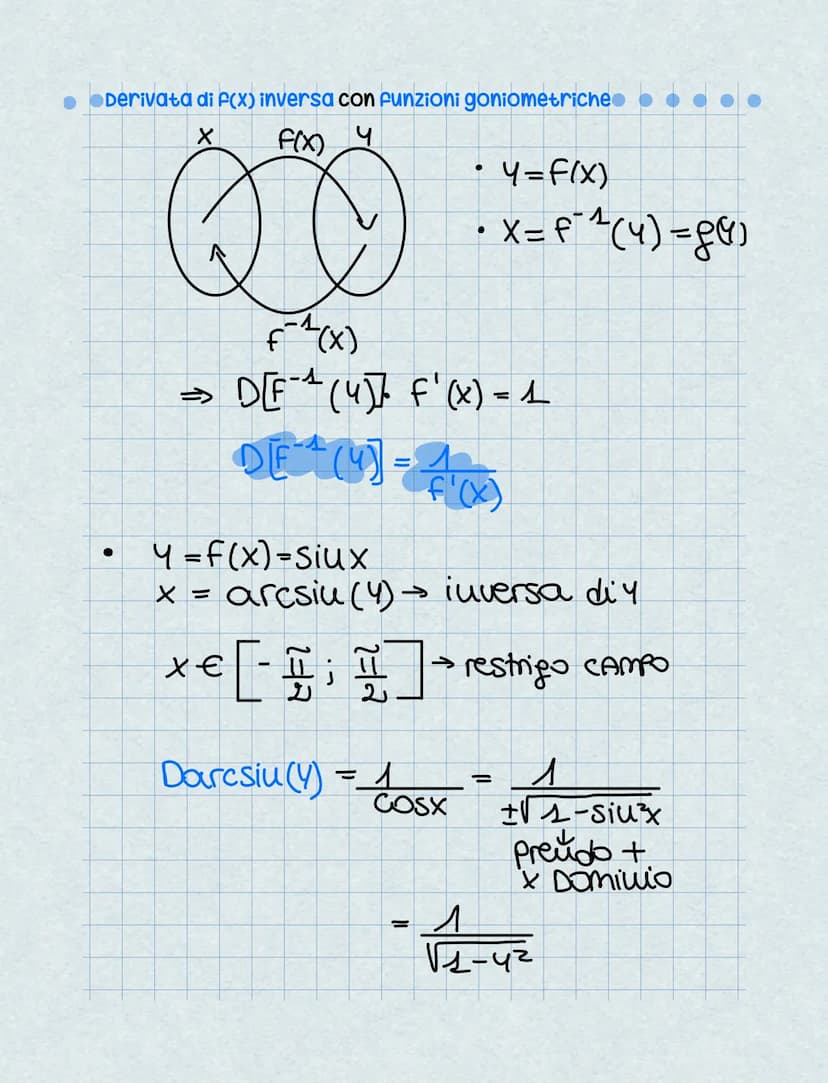 Derivata di f(x) inversa con funzioni goniometriche
x f(x) y
• y=f(x)
• x=f⁻¹(y)=g(y)
f⁻¹(x)
⇒ D[f⁻¹(y)]· f'(x) = 1
D[f⁻¹(y)] = 1/f'(x)
• y=f(x)=sinx
x = arcsin(y) → inversa di y
x ∈ [-π/2 ; π/2] → restrigo campo
Darcsin(y) = 1/cosx = 1/±√1-sin²x
↓
prendo +
x Dominio
= 1/√1-y²